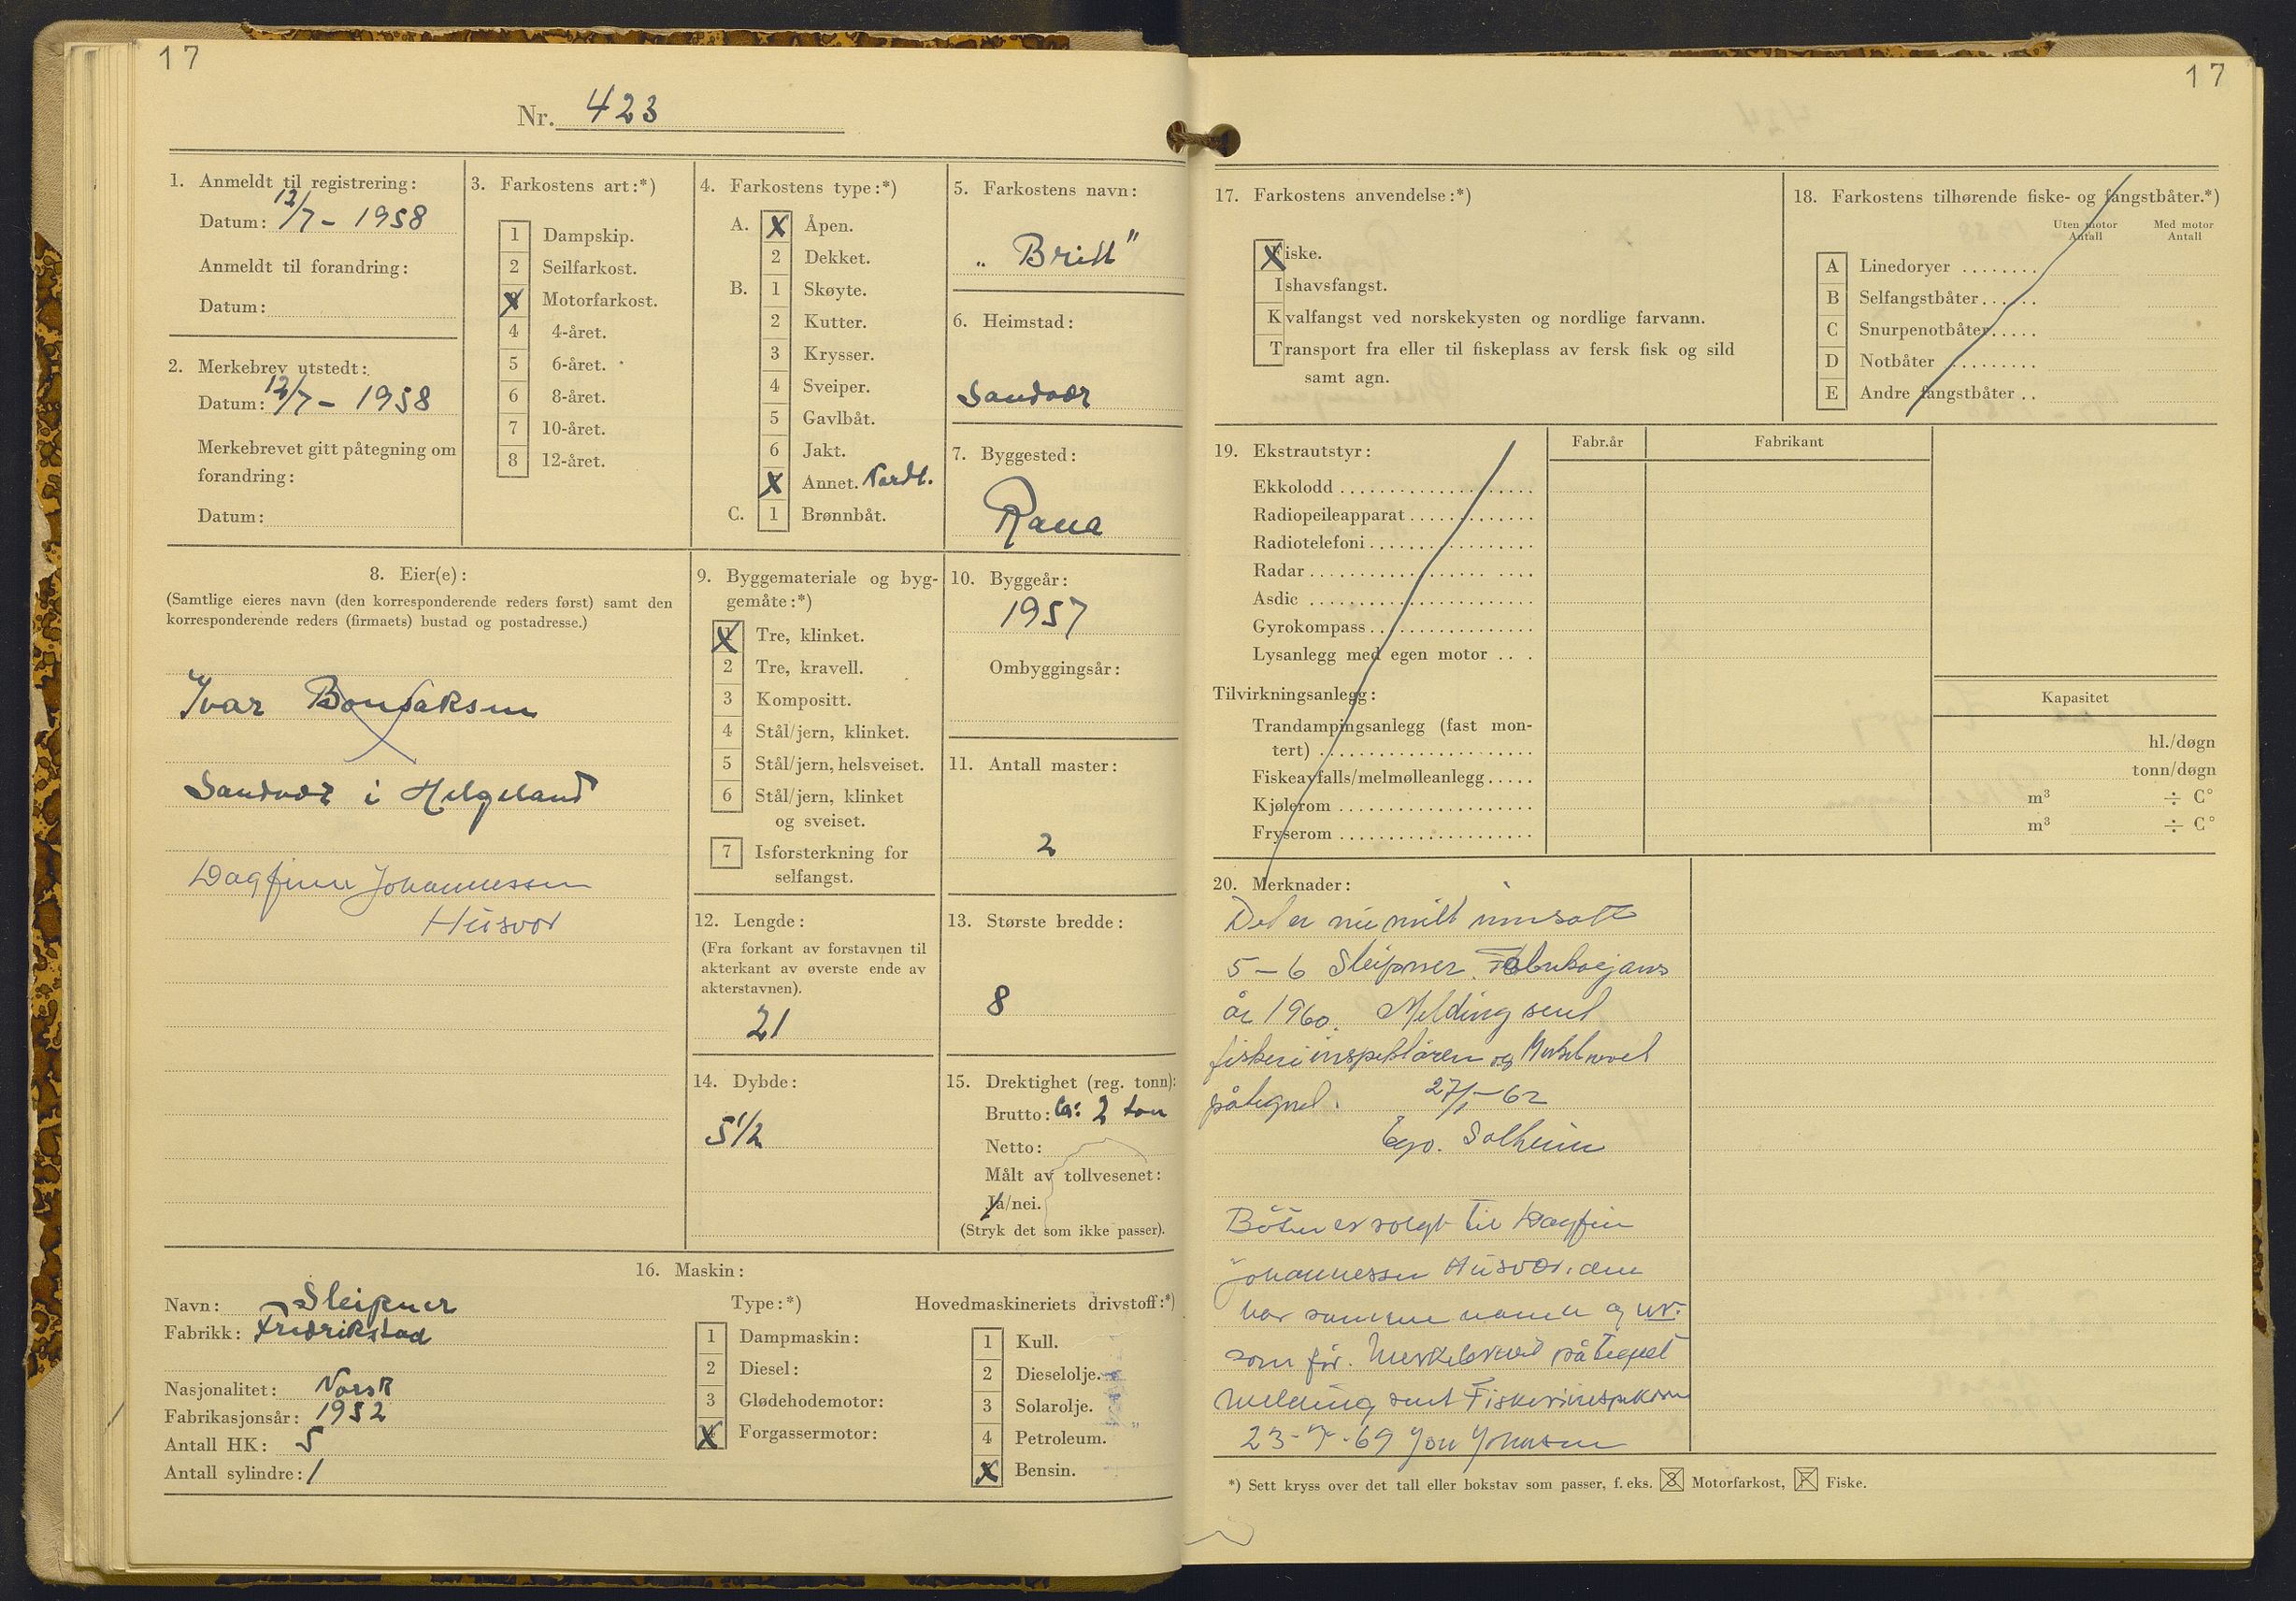 17
Nr. 423
1. Anmeldt til registrering:
Datum: 12/7 - 1958
Anmeldt til forandring:
Datum:
2. Merkebrev utstedt:
Datum: 12/7 - 1958
Merkebrevet gitt påtegning om
forandring:
Datum:
3. Farkostens art:*)
1 Dampskip.
2 Seilfarkost.
X Motorfarkost.
4 4-året.
5 6-året.
6 8-året.
7 10-året.
8 12-året.
4. Farkostens type:*)
A. X Åpen.
2 Dekket.
B. 1 Skøyte.
2 Kutter.
3 Krysser.
4 Sveiper.
5 Gavlbåt.
6 Jakt.
X Annet. Nordl.
C. 1 Brønnbåt.
5. Farkostens navn:
„Britt"
6. Heimstad:
Sandvær
7. Byggested:
Rana
8. Eier(e):
(Samtlige eieres navn (den korresponderende reders først) samt den
korresponderende reders (firmaets) bustad og postadresse.)
Ivar Bondaksen
Sandvær i Helgeland
Dagfinn Johannessen
Husvær
9. Byggemateriale og byg-
gemåte:*)
X Tre, klinket.
2 Tre, kravell.
3 Kompositt.
4 Stål/jern, klinket.
5 Stål/jern, helsveiset.
6 Stål/jern, klinket
og sveiset.
7 Isforsterkning for
selfangst.
10. Byggeår:
1957
Ombyggingsår:
11. Antall master:
2
12. Lengde:
(Fra forkant av forstavnen til
akterkant av øverste ende av
akterstavnen).
21
13. Største bredde:
8
14. Dybde:
5 1/2
15. Drektighet (reg. tonn):
Brutto: Ca: 2 ton
Netto:
Målt av tollvesenet:
Ja/nei.
(Stryk det som ikke passer).
16. Maskin:
Navn: Sleipner
Fabrikk: Fredrikstad
Nasjonalitet: Norsk
Fabrikasjonsår: 1952
Antall HK: 5
Antall sylindre: 1
Type:*)
1 Dampmaskin:
2 Diesel:
3 Glødehodemotor:
X Forgassermotor:
Hovedmaskineriets drivstoff:*)
1 Kull.
2 Dieselolje.
3 Solarolje.
4 Petroleum.
X Bensin.
17
17. Farkostens anvendelse:*)
Fiske.
Ishavsfangst.
Kvalfangst ved norskekysten og nordlige farvann.
Transport fra eller til fiskeplass av fersk fisk og sild
samt agn.
18. Farkostens tilhørende fiske- og fangstbåter.*)
Uten motor Antall
Med motor Antall
A Linedoryer
B Selfangstbåter
C Snurpenotbåter
D Notbåter
E Andre fangstbåter
19. Ekstrautstyr:
Fabr.år
Fabrikant
Ekkolodd
Radiopeileapparat
Radiotelefoni
Radar
Asdic
Gyrokompass
Lysanlegg med egen motor
Tilvirkningsanlegg:
Kapasitet
Trandampingsanlegg (fast mon-
tert) hl./døgn
Fiskeavfalls/melmølleanlegg tonn/døgn
Kjølerom m³ ÷ C°
Fryserom m³ ÷ C°
20. Merknader:
Det er nu innsatt
5-6 Sleipner. Fabrikasjons
år 1960. Melding sent
fiskeriinspektøren og Merkebrevet
påtegnet. 27/1-62
Solheim
Båten er solgt til Dagfin
Johannessen Husvær. den
har samme navn og nr.
som før. Merkebrevet påtegnet
melding sent Fiskeriinspektøren
23-7-69 Jon Johnsen
*) Sett kryss over det tall eller bokstav som passer, f. eks. 3 Motorfarkost, F Fiske.